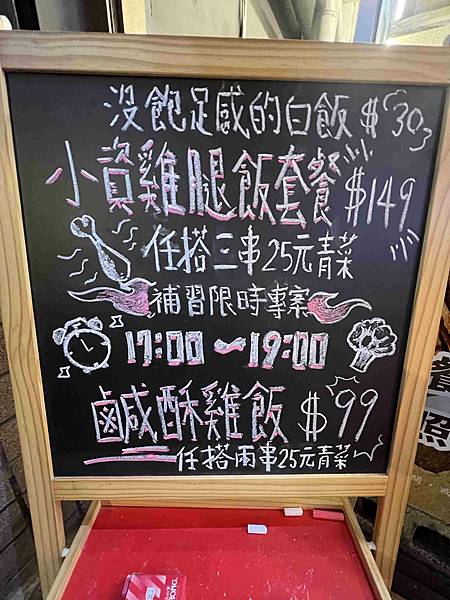 沒飽足感的白飯 $30
小資雞腿飯套餐 $149
任搭三串25元青菜
補習限時專案
17:00～19:00
鹹酥雞飯 $99
任搭兩串25元青菜